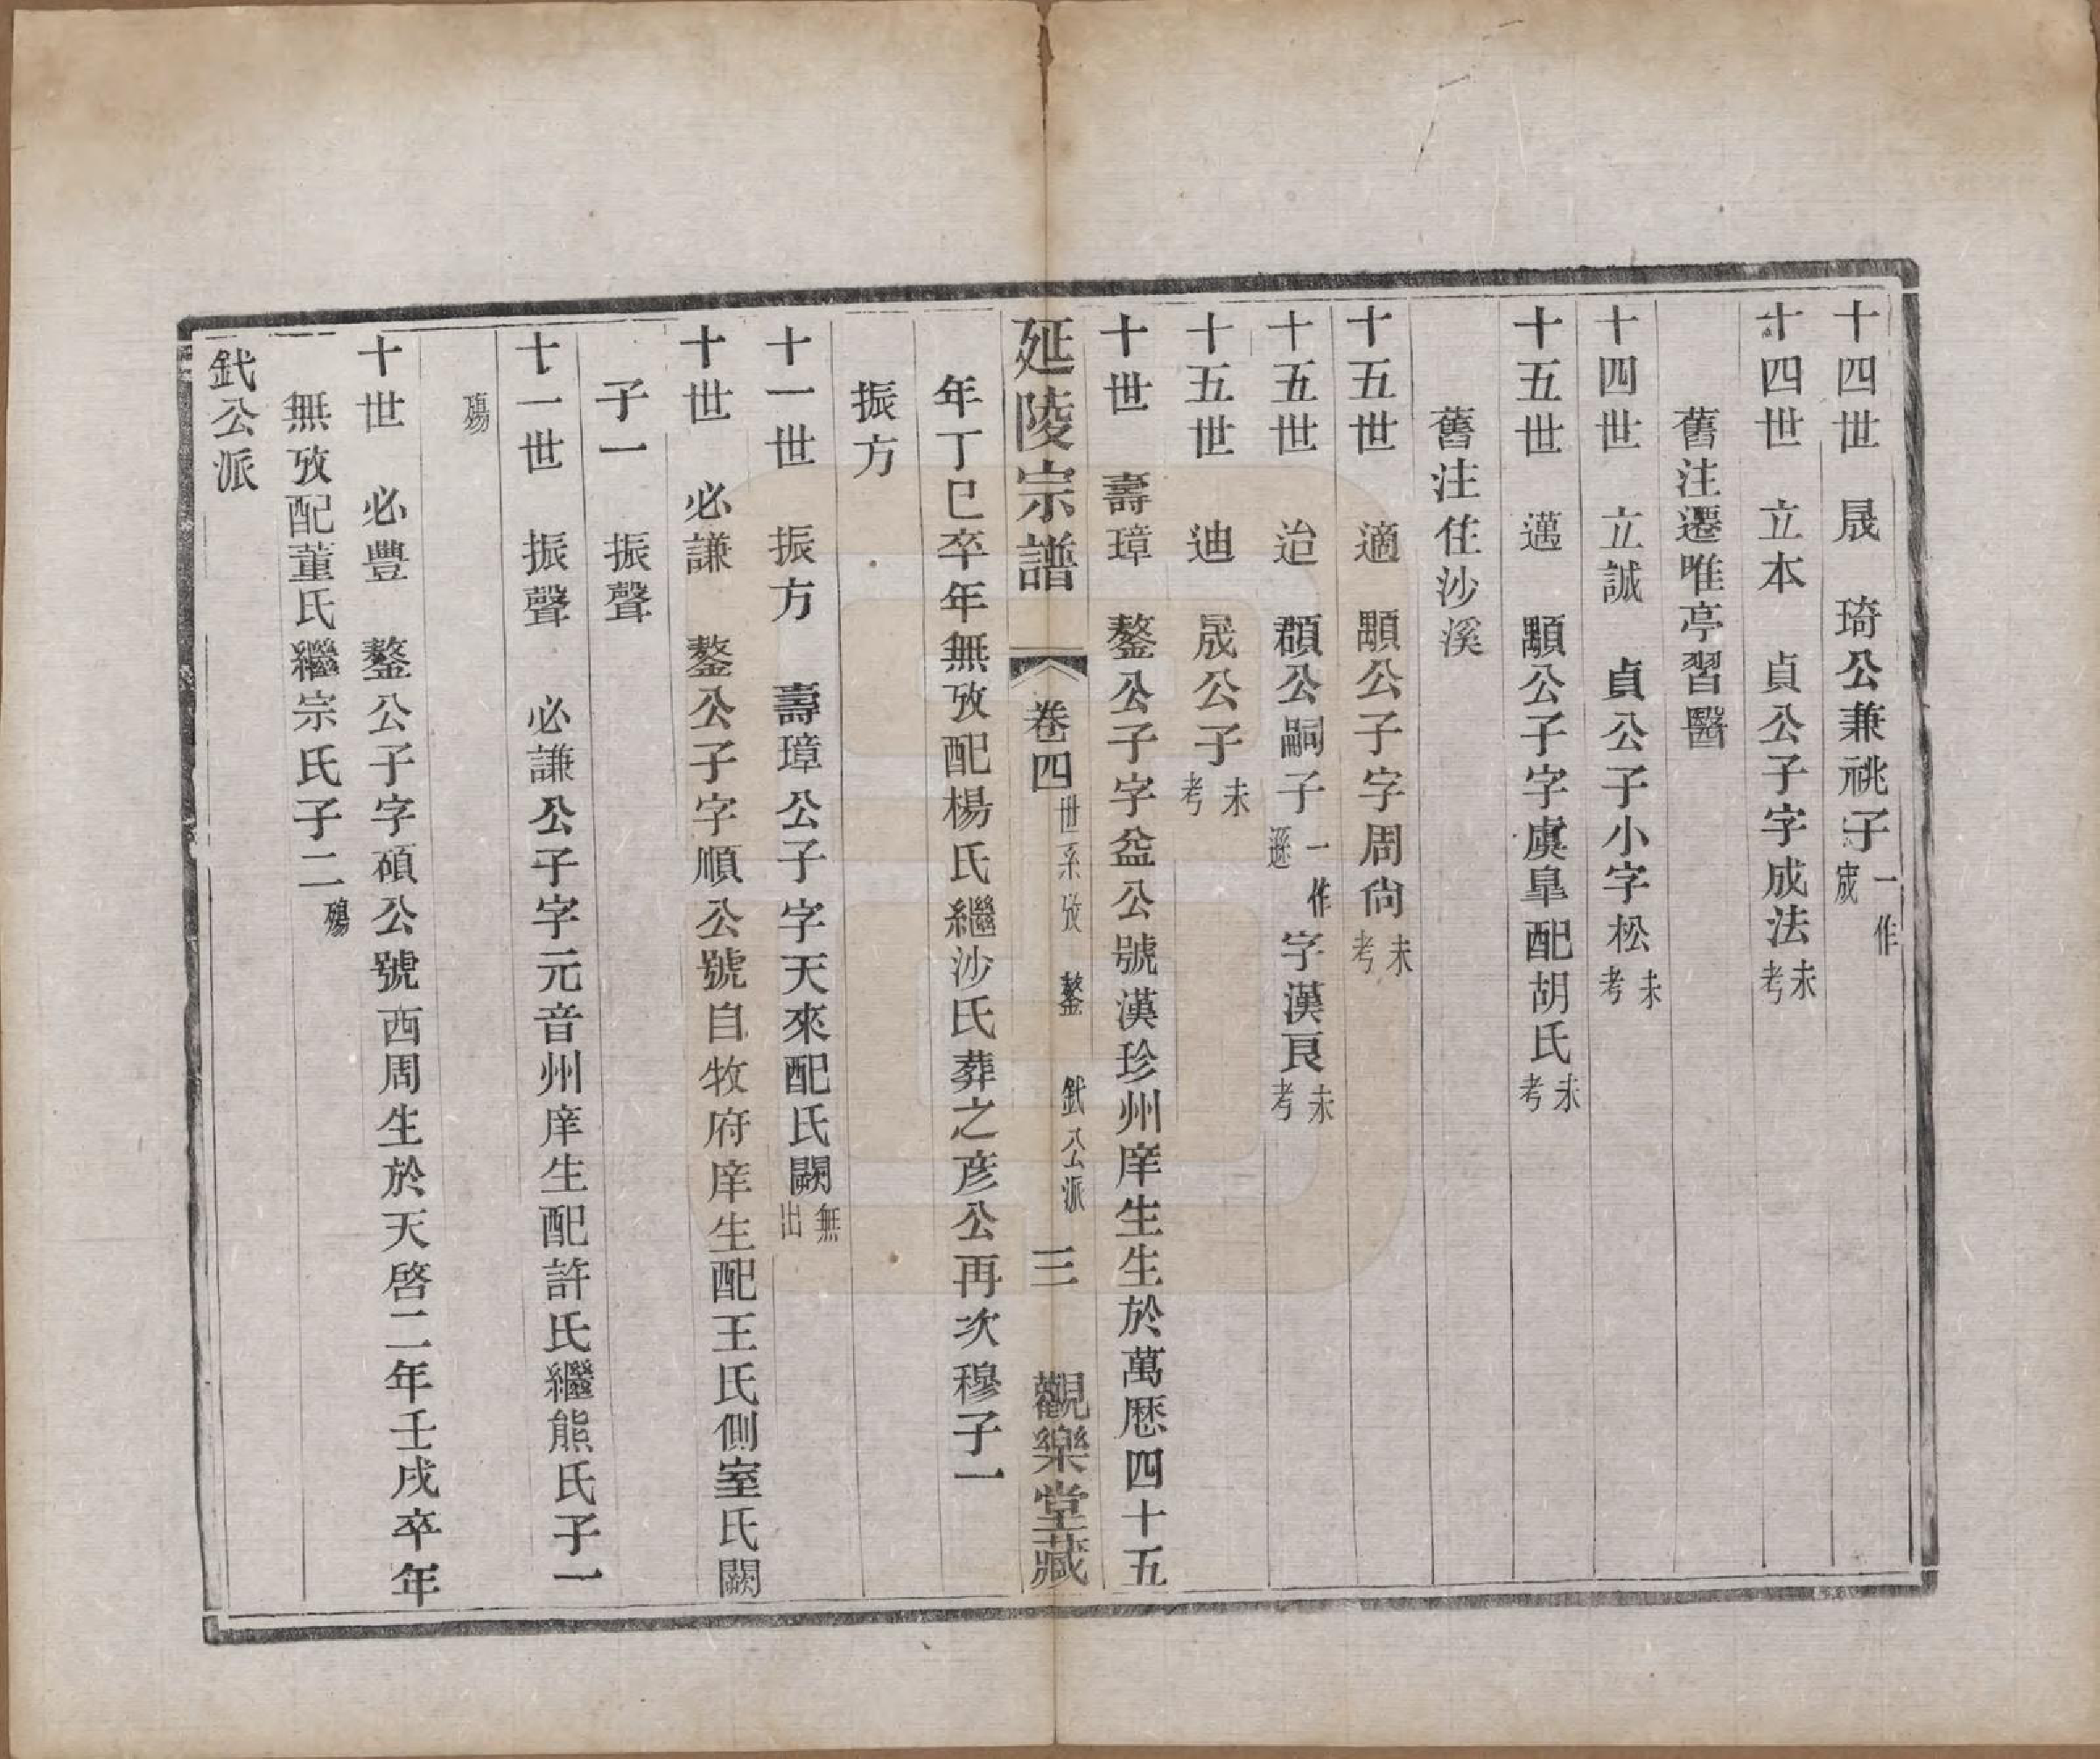 十四世　晟　琦公兼祧子一作宬
十四世　立本　貞公子字成法未考
舊注遷唯亭習醫
十四世　立誠　貞公子小字松未考
十五世　邁　顒公子字虞臯配胡氏未考
舊注住沙溪
十五世　適　顒公子字周尙未考
十五世　迨　頵公嗣子一作遜字漢良未考
十五世　迪　晟公子未考
十世　壽璋　鏊公子字益公號漢珍州庠生生於萬厯四十五
延陵宗譜　卷四　世系攷　鏊　釴公派　三　觀樂堂藏
年丁巳卒年無攷配楊氏繼沙氏葬之彦公再次穆子一
振方
十一世　振方　壽璋公子字天來配氏闕無出
十世　必謙　鏊公子字順公號自牧府庠生配王氏側室氏闕
子一　振聲
十一世　振聲　必謙公子字元音州庠生配許氏繼熊氏子一
殤
十世　必豐　鏊公子字碩公號西周生於天啓二年壬戌卒年
無攷配董氏繼宗氏子二殤
釴公派